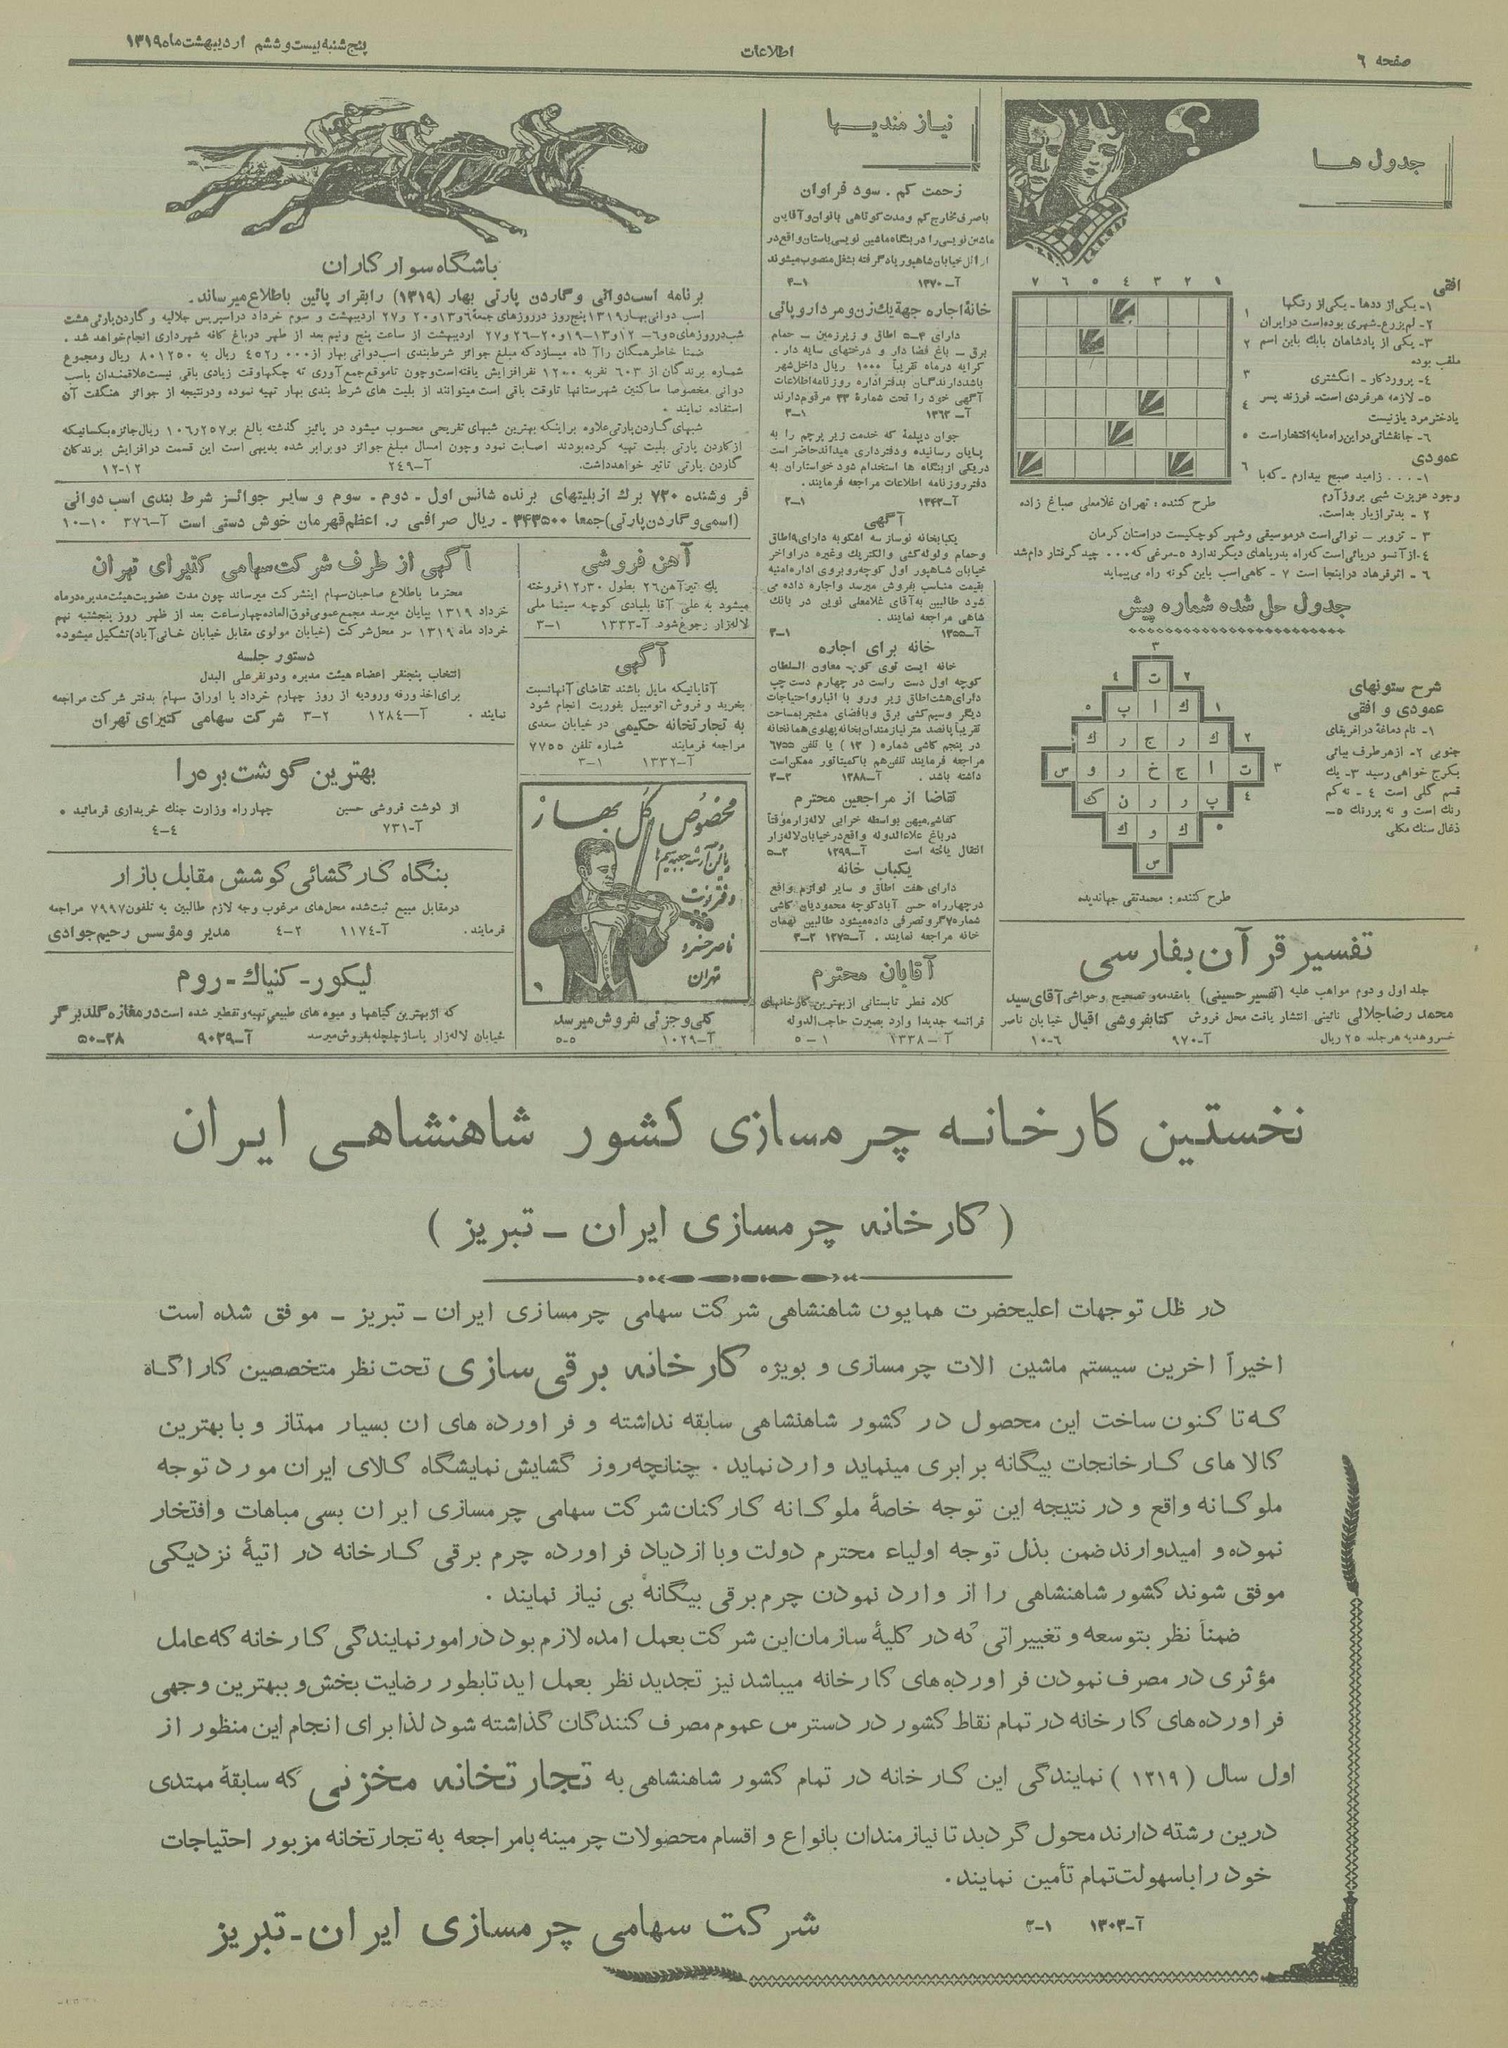 صفحه ٦
اطلاعات
پنج‌شنبه بیست و ششم اردیبهشت ماه ۱۳۱۹
جدول ها
۱ ۲ ۳ ٤ ٥ ٦ ۷
۱
۲
۳
٤
٥
٦
طرح کننده : تهران غلامعلی صباغ زاده
افقی
۱- یکی از ددها - یکی از رنگها
۲- لم یزرع - شهری بوده است در ایران
۳- یکی از پادشاهان بابك باین اسم
ملقب بوده
٤- پروردکار - انگشتری
٥- لازمه هرفردی است - فرزند پسر
یادختر مرد یازنیست
٦- جانفشانی در این راه مایه افتخار است
عمودی
۱- . . . . زامید صبح بیدارم - که با
وجود عزیزت شبی بروز آرم
۲ - بدتر ازیار بد است.
۳ - تزویر - نوائی است در موسیقی و شهر کوچکیست در استان کرمان
٤- از آنسو دریائی است که راه بدریاهای دیگر ندارد ٥- مرغی که ۰۰۰ چید گرفتار دام شد
٦ - اثر فرهاد در اینجا است ۷ - کاهی اسب باین گونه راه می پیماید
جدول حل شده شماره پیش
شرح ستونهای
عمودی و افقی
۱- نام دماغۀ در افریقای
جنوبی ۲- ازهر طرف بیائی
بکرج خواهی رسید ۳- یك
قسم گلی است ٤ - نه کم
رنك است و نه پررنك ٥-
ذغال سنك مکلی
ت
ك ا پ
ك ر ج ر ك
ت ا ج خ ر و س
پ ر ر ن ك
ك ر ك
س
طرح کننده : محمدتقی جهاندیده
تفسیر قرآن بفارسی
جلد اول و دوم مواهب علیه (تفسیر حسینی) بامقدمه و تصحیح وحواشی آقای سید
محمد رضا جلالی نائینی انتشار یافت محل فروش کتابفروشی اقبال خیابان ناصر
خسرو هدیه هر جلد ۲٥ ریال آ-۹۷۰ ٦-۱۰
نیازمندیها
زحمت کم . سود فراوان
باصرف مخارج کم و مدت کوتاهی بانوان و آقایان
ماشین نویسی را در بنگاه ماشین نویسی باستان واقع در
اوائل خیابان شاهپور یاد گرفته بشغل منصوب میشوند
آ-۱۳۷۰ ۱-۳
خانۀ اجاره جهة یك زن و مرد اروپائی
دارای ٤-٥ اطاق و زیرزمین - حمام
برق - باغ فضا دار و درختهای سایه دار .
کرایه در ماه تقریباً ۱۰۰۰ ریال داخل شهر
باشد دارندگان بدفتر اداره روزنامه اطلاعات
آگهی خود را تحت شمارۀ ۳۳ مرقوم دارند
آ-۱۳۶۲ ۱-۳
جوان دیپلمه که خدمت زیر پرچم را به
پایان رسانیده و دفترداری میداند حاضر است
در یکی از بنگاه ها استخدام شود خواستاران به
دفتر روزنامه اطلاعات مراجعه فرمایند.
آ-۱۳۴۳ ۱-۳
آگهی
یکبابخانه نوساز سه اشکوبه دارای ۹ اطاق
وحمام ولوله کشی والکتریك وغیره در اواخر
خیابان شاهپور اول کوچه روبروی اداره امنیه
بقیمت مناسب بفروش میرسد و اجاره داده می
شود طالبین به آقای غلامعلی نوین در بانك
شاهی مراجعه نمایند .
آ-۱۳۵۵ ۱-۳
خانه برای اجاره
خانه ایست توی کوچه معاون السلطان
کوچه اول دست راست در چهارم دست چپ
دارای هشت اطاق زیر ورو با انبار و احتیاجات
دیگر وسیم کشی برق و بافضای مشجر بمساحت
تقریباً پانصد متر نیازمندان بخانه پهلوی همانخانه
در پنجم کاشی شماره ( ۱۳ ) یا تلفن ٦۷٥٥
مراجعه فرمایند تلفن هم باکمیتاتور ممکن است
داشته باشد . آ-۱۲۸۸ ۲-۳
تقاضا از مراجعین محترم
کفاشی میهن بواسطه خرابی لاله زار موقتاً
در باغ علاءالدوله واقع در خیابان لاله زار
انتقال یافته است آ-۱۲۹۹ ۳-٥
یکباب خانه
دارای هفت اطاق و سایر لوازم واقع
در چهارراه حسن آباد کوچه محمودیان کاشی
شماره ۷ گرو و تصرفی داده میشود طالبین بهمان
خانه مراجعه نمایند . آ-۱۲۷۵ ۳-۳
آقایان محترم
کلاه فطر تابستانی از بهترین کارخانهای
فرانسه جدیداً وارد بصیرت حاجب الدوله
آ-۱۳۳۸ ۱-٥
باشگاه سوارکاران
برنامه اسب دوانی و گاردن پارتی بهار (۱۳۱۹) را بقرار پائین باطلاع میرساند.
اسب دوانی بهار ۱۳۱۹ پنج روز در روزهای جمعۀ ٦ و۱۳ و۲۰ و۲۷ اردیبهشت و سوم خرداد در اسپریس جلالیه و گاردن پارتی هشت
شب در روزهای ٥ و٦-۱۲ و۱۳-۱۹ و۲۰-۲٦ و۲۷ اردیبهشت از ساعت پنج ونیم بعد از ظهر در باغ کافه شهرداری انجام خواهد شد .
ضمنا خاطر همگان را آگاه میسازد که مبلغ جوائز شرط بندی اسب دوانی بهار از ۴۵۲٫۰۰۰ ریال به ۸۰۱۲۵۰ ریال و مجموع
شماره برندگان از ۶۰۳ نفر به ۱۲۰۰ نفر افزایش یافته است و چون تا موقع جمع آوری ته چکها وقت زیادی باقی نیست علاقمندان باسب
دوانی مخصوصا ساکنین شهرستانها تا وقت باقی است میتوانند از بلیت های شرط بندی بهار تهیه نموده و در نتیجه از جوائز هنگفت آن
استفاده نمایند .
شبهای گاردن پارتی علاوه براینکه بهترین شبهای تفریحی محسوب میشود در پائیز گذشته بالغ بر ۱۰۶٫۲۵۷ ریال جائزه بکسانیکه
از کاردن پارتی بلیت تهیه کرده بودند اصابت نمود وچون امسال مبلغ جوائز دوبرابر شده بدیهی است این قسمت در افزایش برندگان
گاردن پارتی تاثیر خواهد داشت. آ-۲۴۹ ۱۲-۱۲
فروشنده ۷۲۰ برك از بلیتهای برنده شانس اول - دوم - سوم و سایر جوائز شرط بندی اسب دوانی
(اسمی و گاردن پارتی) جمعا ۳٤۳٥۰۰ - ریال صرافی ر . اعظم قهرمان خوش دستی است آ-۳۷٦ ۱۰-۱۰
آهن فروشی
یك تیر آهن ۲٦ بطول ۱۲٫۳۰ فروخته
میشود به علی آقا بلبادی کوچه سینما ملی
لاله زار رجوع شود آ-۱۳۳۳ ۱-۳
آگهی
آقایانیکه مایل باشند تقاضای آنهانسبت
بخرید و فروش اتومبیل بفوریت انجام شود
به تجارتخانه حکیمی در خیابان سعدی
مراجعه فرمایند شماره تلفن ۷۷٥٥
آ-۱۳۳۲ ۱-۳
مخصوص گل بهار
دفتر نت
ناصر خسرو
تهران
کلی و جزئی بفروش میرسد
آ-۱۰۲۹ ٥-٥
آگهی از طرف شرکت سهامی کتیرای تهران
محترما باطلاع صاحبان سهام اینشرکت میرساند چون مدت عضویت هیئت مدیره در ماه
خرداد ۱۳۱۹ بپایان میرسد مجمع عمومی فوق العاده چهار ساعت بعد از ظهر روز پنجشنبه نهم
خرداد ماه ۱۳۱۹ در محل شرکت (خیابان مولوی مقابل خیابان خانی آباد) تشکیل میشود.
دستور جلسه
انتخاب پنج نفر اعضاء هیئت مدیره ودونفر علی البدل
برای اخذ ورقه ورودیه از روز چهارم خرداد با اوراق سهام بدفتر شرکت مراجعه
نمایند . آ-۱۲۸٤ ۲-۳ شرکت سهامی کتیرای تهران
بهترین گوشت بره را
از گوشت فروشی حسین چهار راه وزارت جنك خریداری فرمائید .
آ-۷۳۱ ٤-٤
بنگاه کارگشائی کوشش مقابل بازار
در مقابل مبیع ثبت شده محل های مرغوب وجه لازم طالبین به تلفون ۷۹۹۷ مراجعه
فرمایند . آ-۱۱۷٤ ۲-٤ مدیر و مؤسس رحیم جوادی
لیکور - کنیاك - روم
که از بهترین گیاهها و میوه های طبیعی تهیه و تقطیر شده است در مغازه گلدبرگر
خیابان لاله زار پاساژ چلچله بفروش میرسد آ-۹۰۲۹ ۳۸-۵۰
نخستین کارخانه چرمسازی کشور شاهنشاهی ایران
( کارخانه چرمسازی ایران - تبریز )
در ظل توجهات اعلیحضرت همایون شاهنشاهی شرکت سهامی چرمسازی ایران - تبریز - موفق شده است
اخیراً آخرین سیستم ماشین آلات چرمسازی و بویژه کارخانه برقی سازی تحت نظر متخصصین کارآگاه
که تا کنون ساخت این محصول در کشور شاهنشاهی سابقه نداشته و فرآورده های آن بسیار ممتاز و با بهترین
کالاهای کارخانجات بیگانه برابری مینماید وارد نماید . چنانچه روز گشایش نمایشگاه کالای ایران مورد توجه
ملوکانه واقع و در نتیجه این توجه خاصۀ ملوکانه کارکنان شرکت سهامی چرمسازی ایران بسی مباهات وافتخار
نموده و امیدوارند ضمن بذل توجه اولیاء محترم دولت و با ازدیاد فرآورده چرم برقی کارخانه در آتیۀ نزدیکی
موفق شوند کشور شاهنشاهی را از وارد نمودن چرم برقی بیگانه بی نیاز نمایند .
ضمناً نظر بتوسعه و تغییراتی که در کلیۀ سازمان این شرکت بعمل آمده لازم بود در امور نمایندگی کارخانه که عامل
مؤثری در مصرف نمودن فرآورده های کارخانه میباشد نیز تجدید نظر بعمل آید تا بطور رضایت بخش و ببهترین وجهی
فرآورده های کارخانه در تمام نقاط کشور در دسترس عموم مصرف کنندگان گذاشته شود لذا برای انجام این منظور از
اول سال ( ۱۳۱۹ ) نمایندگی این کارخانه در تمام کشور شاهنشاهی به تجارتخانه مخزنی که سابقۀ ممتدی
درین رشته دارند محول گردید تا نیازمندان بانواع و اقسام محصولات چرمینه با مراجعه به تجارتخانه مزبور احتیاجات
خود را با سهولت تمام تأمین نمایند.
آ-۱۳۰۳ ۱-۳
شرکت سهامی چرمسازی ایران - تبریز